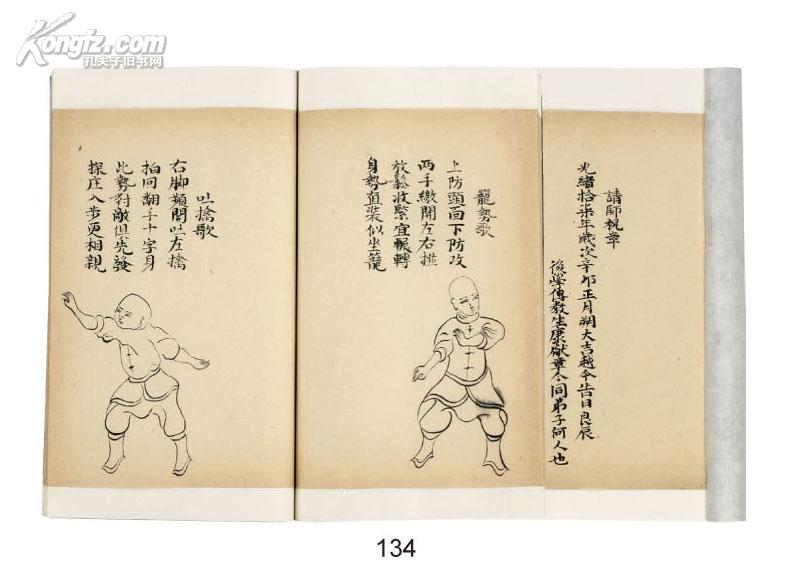 Kongfz.com
孔夫子旧书网
請師祝章
光緒拾柒年歲次辛卯正月朔大吉越今告日良辰
後學傳教生康献章今同弟子何人也
籠勢歌
上防頭面下防攻
兩手繳開左右推
放鬆收緊宜輾轉
身勢直裝似坐籠
吐擒歌
右脚頻開吐左擒
拍同翻手十字身
此勢對敵但先發
探庄入步更相親
134